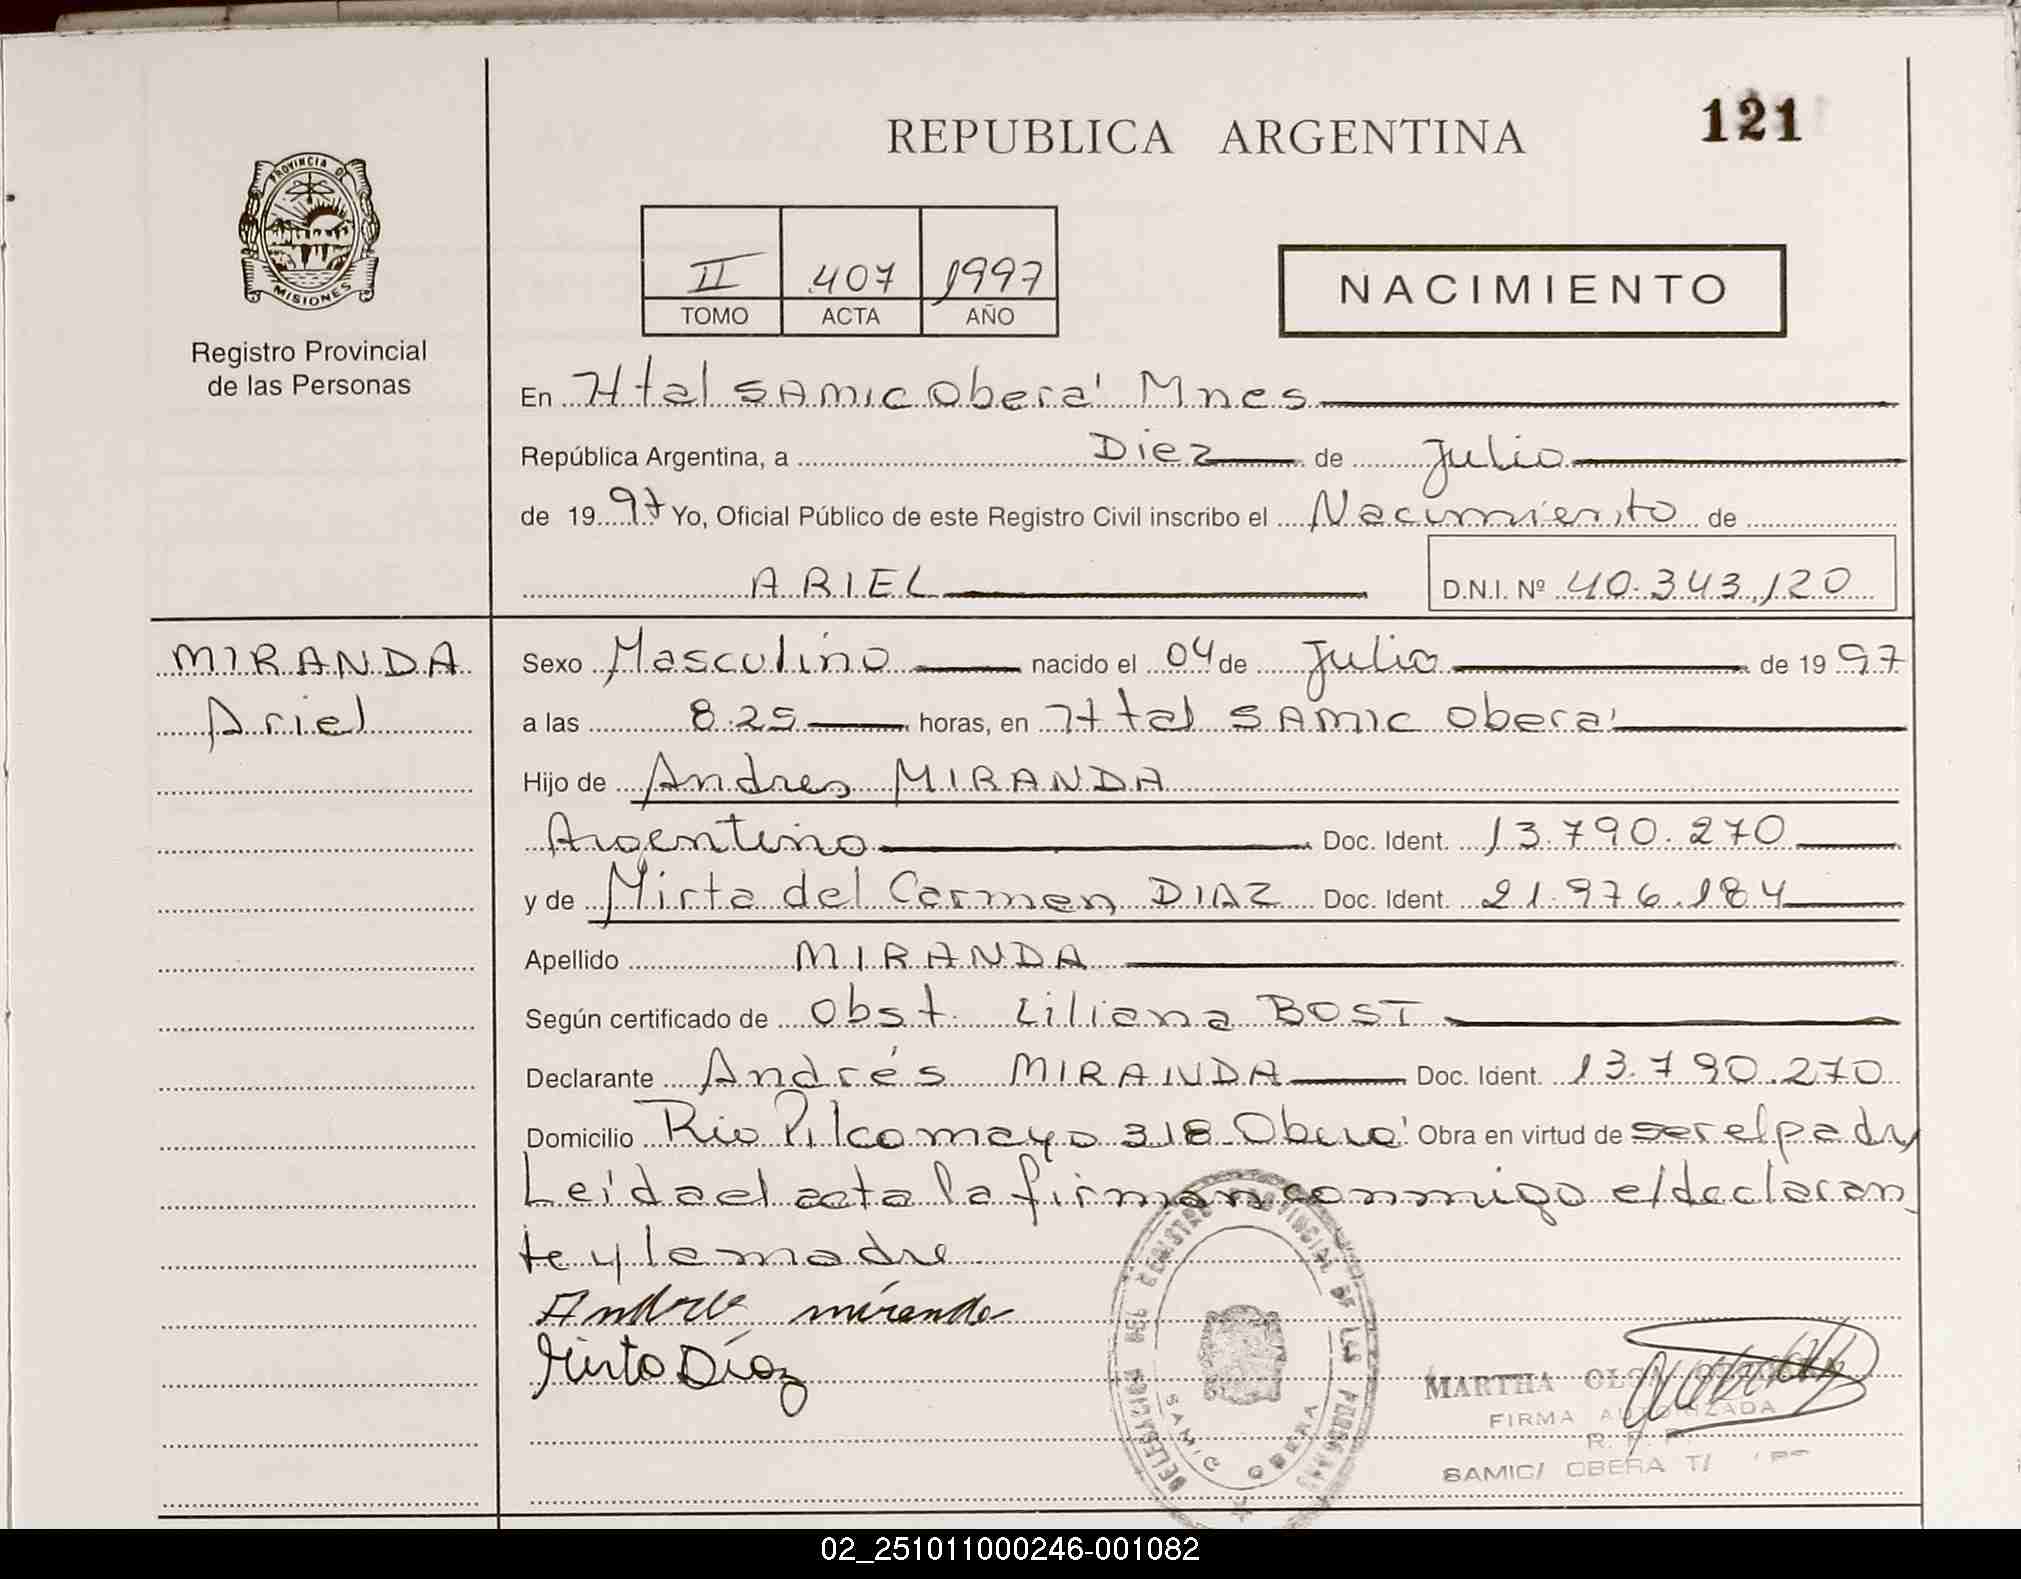 REPUBLICA ARGENTINA
121
PROVINCIA DE
MISIONES
Registro Provincial
de las Personas
II 407 1997
TOMO ACTA AÑO
NACIMIENTO
En Htal SAMIC Oberá Mnes
República Argentina, a Diez de Julio
de 1997 Yo, Oficial Público de este Registro Civil inscribo el Nacimiento de
ARIEL D.N.I. Nº 40.343.120
MIRANDA
Ariel
Sexo Masculino nacido el 04 de Julio de 1997
a las 8.25 horas, en Htal SAMIC Oberá
Hijo de Andres MIRANDA
Argentino Doc. Ident. 13.790.270
y de Mirta del Carmen DIAZ Doc. Ident. 21.976.184
Apellido MIRANDA
Según certificado de Obst. Liliana BOST
Declarante Andrés MIRANDA Doc. Ident. 13.790.270
Domicilio Rio Pilcomayo 318 Oberá Obra en virtud de ser el padre
Leída el acta la firman conmigo el declaran
te y la madre
Andres miranda
Mirta Díaz
DELEGACION DEL REGISTRO PROVINCIAL DE LAS PERSONAS
SAMIC OBERA
MARTHA
FIRMA AUTORIZADA
R. P. P.
SAMIC/ OBERA
02_251011000246-001082